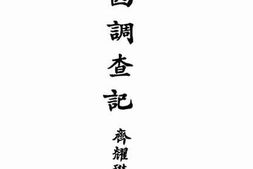 調查記
齊耀